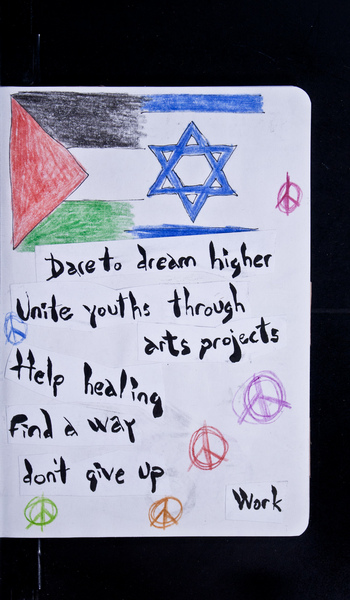 Dare to dream higher
Unite youths through
arts projects
Help healing
find a way
don't give up
Work